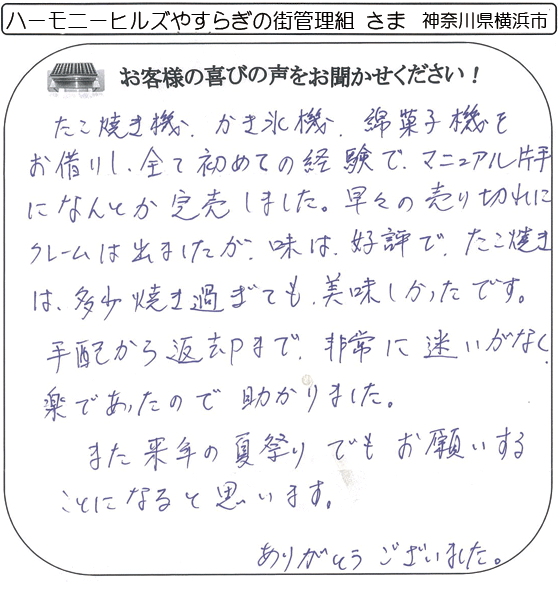 ハーモニーヒルズやすらぎの街管理組 さま 神奈川県横浜市
お客様の喜びの声をお聞かせください！
たこ焼き機、かき氷機、綿菓子機を
お借りし、全て初めての経験で、マニュアル片手
になんとか完売しました。早々の売り切れに
クレームは出ましたが、味は、好評で、たこ焼き
は、多少焼き過ぎても、美味しかったです。
手配から返却まで、非常に迷いがなく、
楽であったので助かりました。
また来年の夏祭りでもお願いする
ことになると思います。
ありがとうございました。